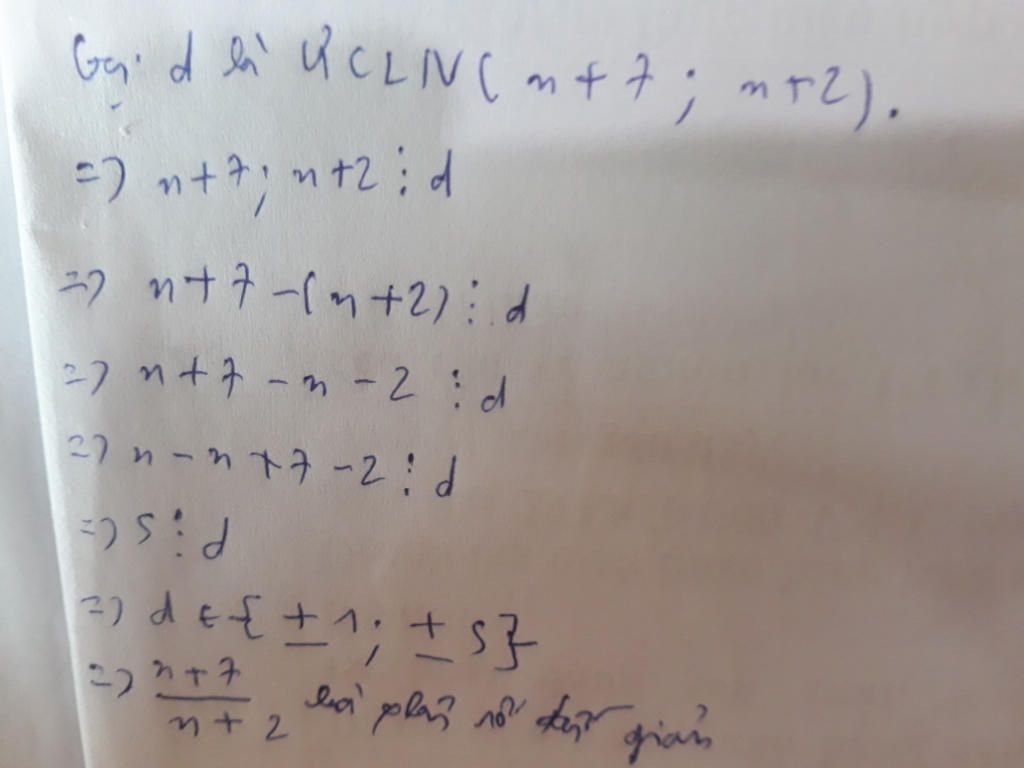 Gọi d là ƯCLN( n + 7 ; n+2).
=> n+7; n+2 ⋮ d
=> n+7-(n+2) ⋮ d
=> n+7-n-2 ⋮ d
=> n-n+7-2 ⋮ d
=> 5 ⋮ d
=> d ∈ { ± 1; ± 5}
=> n+7/n+2 là phân số tối giản